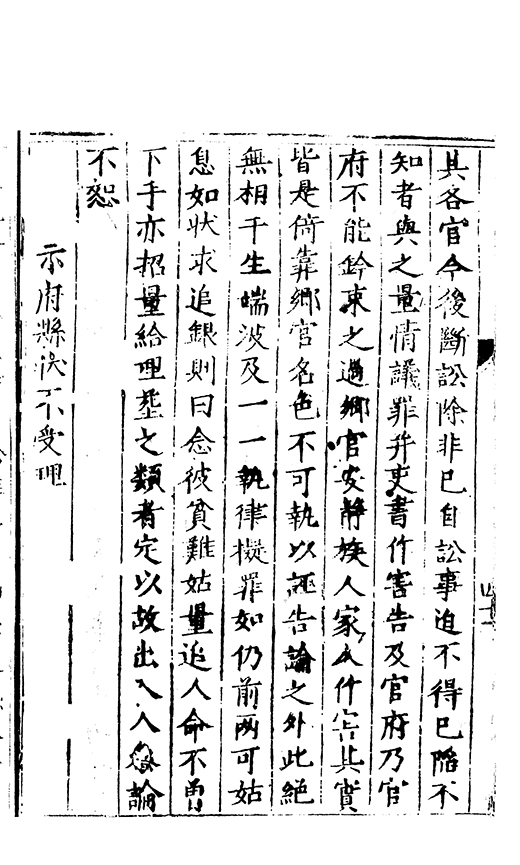 其各官今後斷訟除非已自訟事迫不得已陷不
知者與之量情議罪并吏書作害告及官府乃官
府不能鈐束之過鄉官安靜族人家人作害其實
皆是倚靠鄉官名色不可執以誣告論之外此絕
無相干生端波及一一執律擬罪如仍前兩可姑
息如狀求追銀則曰念彼貧難姑量追人命不曾
下手亦招量給埋塟之類者定以故出入人論
不恕
示府縣決不受理